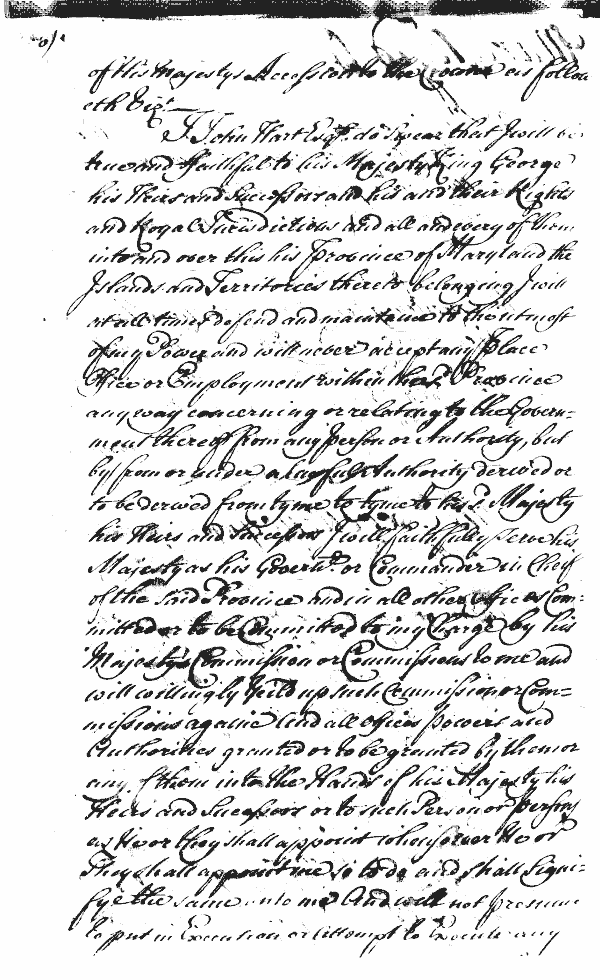 of His Majestys Accession to the Crowne as follow
eth Viz.t
I John Hart Esq.r do Swear that I will be
true and faithful to his Majesty King George
his Heirs and Successors and his and their Rights
and Royal Jurisdictions and all and every of them
into and over this his Province of Maryland the
Islands and Territories thereto belonging I will
at all times defend and maintaine to the utmost
of my Power and will never accept any Place
Office or Employment within the s.d Province
any way concerning or relating to the Govern=
ment thereof from any person or Authority, but
by from or under a lawful Authority derived or
to be derived from tyme to tyme to his s.d Majesty
his Heirs and Successors I will faithfully serve his
Majesty as his Govern.r or Commander in Cheif
of the said Province and in all other offices Com=
mitted or to be Committed to my Charge by his
Majesty's Commission or Commissions to me and
will willingly yeild up such Commission or Com=
missions againe And all offices powers and
Authorities granted or to be granted by them or
any of them into the Hands of his Majesty his
Heirs and Successors or to such Person or persons
as He or they shall appoint whensoever He or
They shall appoint me so to do and shall Signi=
fye the same unto me And will not presume
to put in Execution or attempt to Execute any